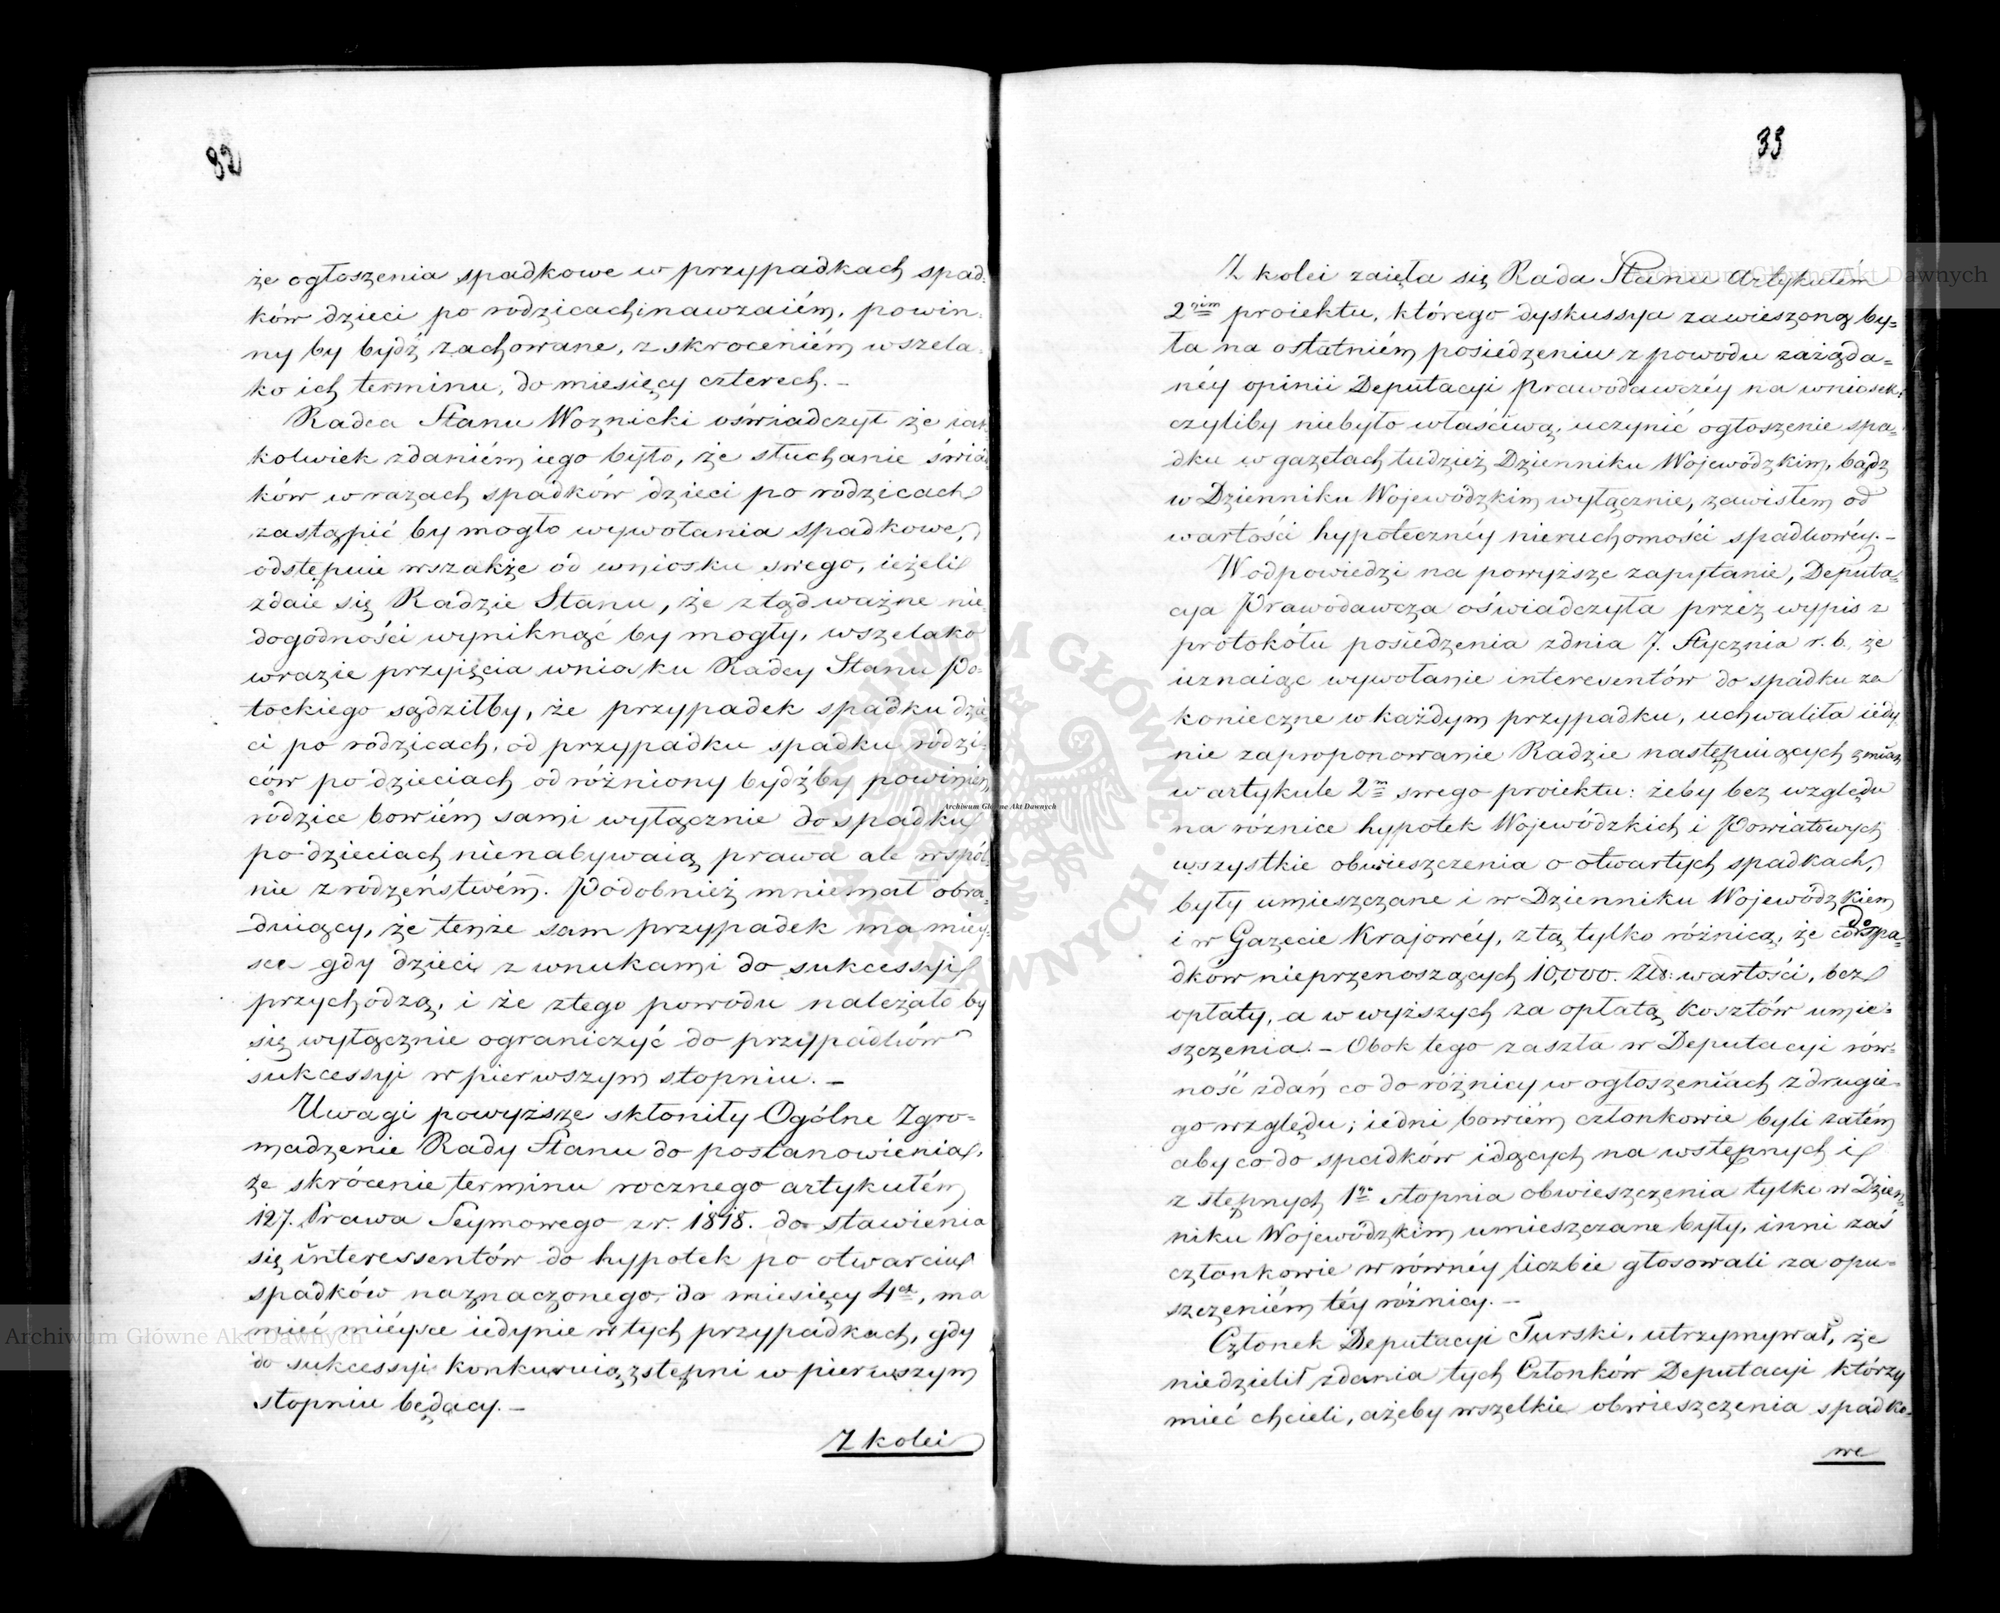 82
że ogłoszenia spadkowe w przypadkach spad-
ków dzieci po rodzicach i nawzaiém, powin-
ny by bydź zachowane, z skroceniém wszela-
ko ich terminu, do miesięcy czterech. –
Radca Stanu Woznicki oświadczył że iak-
kolwiek zdaniém iego było, że słuchanie świad-
ków w razach spadków dzieci po rodzicach
zastąpić by mogło wywołania spadkowe,
odstępuie wszakże od wniosku swego, ieżeli
zdaie się Radzie Stanu, że ztąd ważne nie-
dogodności wyniknąć by mogły, wszelako
w razie przyięcia wniosku Radcy Stanu Po-
tockiego sądziłby, że przypadek spadku dzie-
ci po rodzicach, od przypadku spadku rodzi-
ców po dzieciach odróżniony bydźby powinien,
rodzice bowiém sami wyłącznie do spadku
po dzieciach nienabywaią prawa ale wspól-
nie z rodzeństwém. Podobnież mniemał obra-
duiący, że tenże sam przypadek ma miey-
sce gdy dzieci z wnukami do sukcessyi
przychodzą, i że ztego powodu należało by
się wyłącznie ograniczyć do przypadków
sukcessyi w pierwszym stopniu. –
Uwagi powyższe skłoniły Ogólne Zgro-
madzenie Rady Stanu do postanowienia,
że skrócenie terminu rocznego artykułém
127. Prawa Seymowego z r. 1818. do stawienia
się interessentów do hypotek po otwarciu
spadków naznaczonego, do miesięcy 4ch, ma
mieć mieysce iedynie w tych przypadkach, gdy
do sukcessyi konkuruią zstępni w pierwszym
stopniu będący. –
Z kolei
33
Z kolei zaięła się Rada Stanu Artykułém
2gim proiektu, którego dyskussya zawieszoną by-
ła na ostatniém posiedzeniu z powodu zażąda-
néy opinii Deputacyi Prawodawczéy na wniosek:
czyliby niebyło właściwą, uczynić ogłoszenie spa-
dku w gazetach tudzież Dzienniku Wojewódzkim, bądź
w Dzienniku Wojewódzkim wyłącznie, zawisłem od
wartości hypotecznéy nieruchomości spadkowéy. –
W odpowiedzi na powyższe zapytanie, Deputa-
cya Prawodawcza oświadczyła przez wypis z
protokółu posiedzenia z dnia 7. Stycznia r. b. że
uznaiąc wywołanie interesentów do spadku za
konieczne w każdym przypadku, uchwaliła iedy-
nie zaproponowanie Radzie następuiących zmian
w artykule 2m swego proiektu: żeby bez względu
na róznice hypotek Wojewódzkich i Powiatowych
wszystkie obwieszczenia o otwartych spadkach,
były umieszczane i w Dzienniku Wojewódzkiem
i w Gazecie Krajowéy, z tą tylko różnicą, że co do spa-
dków nieprzenoszących 10,000. Złł: wartości, bez
opłaty, a w wyższych za opłatą kosztów umie-
szczenia. – Obok tego zaszła w Deputacyi rów-
ność zdań co do różnicy w ogłoszeniach z drugie-
go względu; iedni bowiém członkowie byli zatém
aby co do spadków idących na wstępnych i
zstępnych 1go stopnia obwieszczenia tylko w Dzien-
niku Wojewódzkim umieszczane były, inni zaś
członkowie w równéy liczbie głosowali za opu-
szczeniém téy różnicy. –
Członek Deputacyi Turski, utrzymywał, że
niedzielił zdania tych Członków Deputacyi którzy
mieć chcieli, ażeby wszelkie obwieszczenia spadko-
we
Archiwum Główne Akt Dawnych
Archiwum Główne Akt Dawnych
Archiwum Główne Akt Dawnych
ARCHIWUM GŁÓWNE AKT DAWNYCH